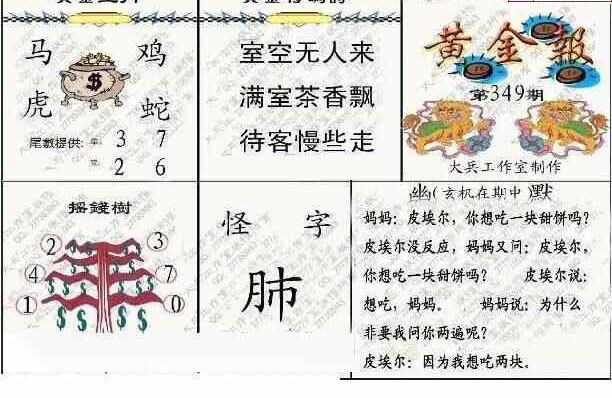 马 鸡
虎 蛇
尾數提供: 3 7
2 6
室空无人来
满室茶香飘
待客慢些走
黄金報
第349期
大兵工作室制作
摇錢樹
2 3
4 7
1 0
怪 字
肺
幽(玄机在期中)默
妈妈：皮埃尔，你想吃一块甜饼吗？
皮埃尔没反应，妈妈又问：皮埃尔，
你想吃一块甜饼吗？ 皮埃尔说：
想吃，妈妈。 妈妈说：为什么
非要我问你两遍呢？
皮埃尔：因为我想吃两块。